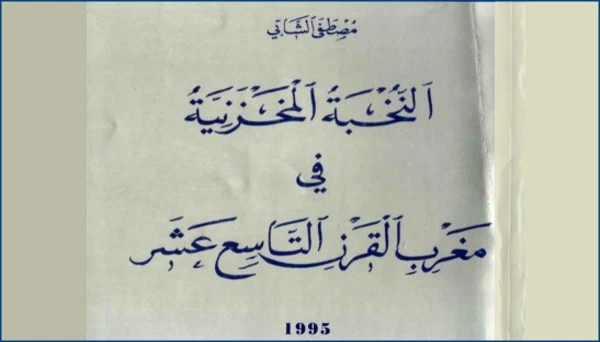 مصطفى الشابي
النُّخْبَةُ الْمَخْزَنِيَّةُ
في
مَغْرِبِ الْقَرْنِ التَّاسِعِ عَشَر
1995